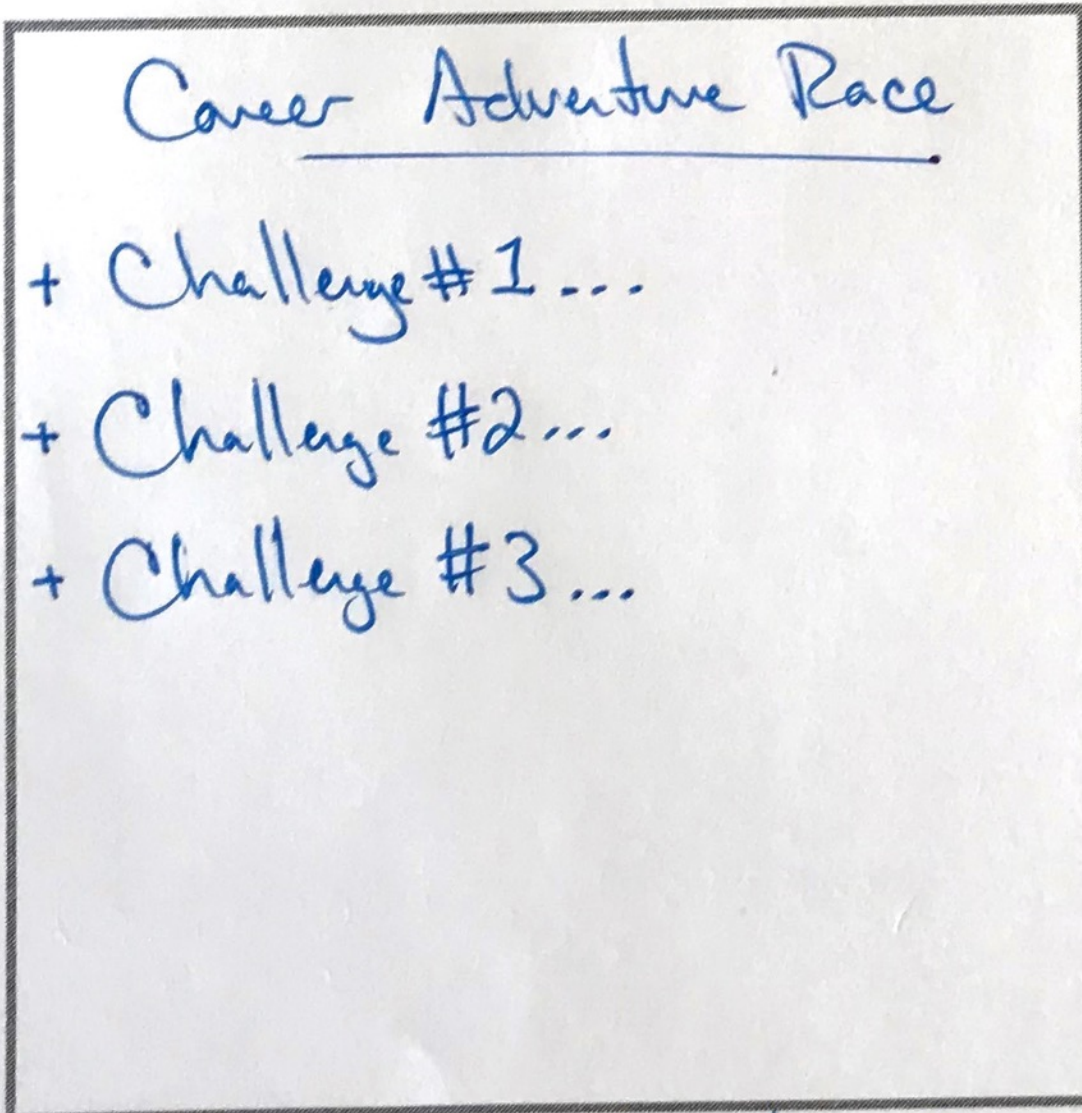 Career Adventure Race
+ Challenge #1...
+ Challenge #2...
+ Challenge #3...